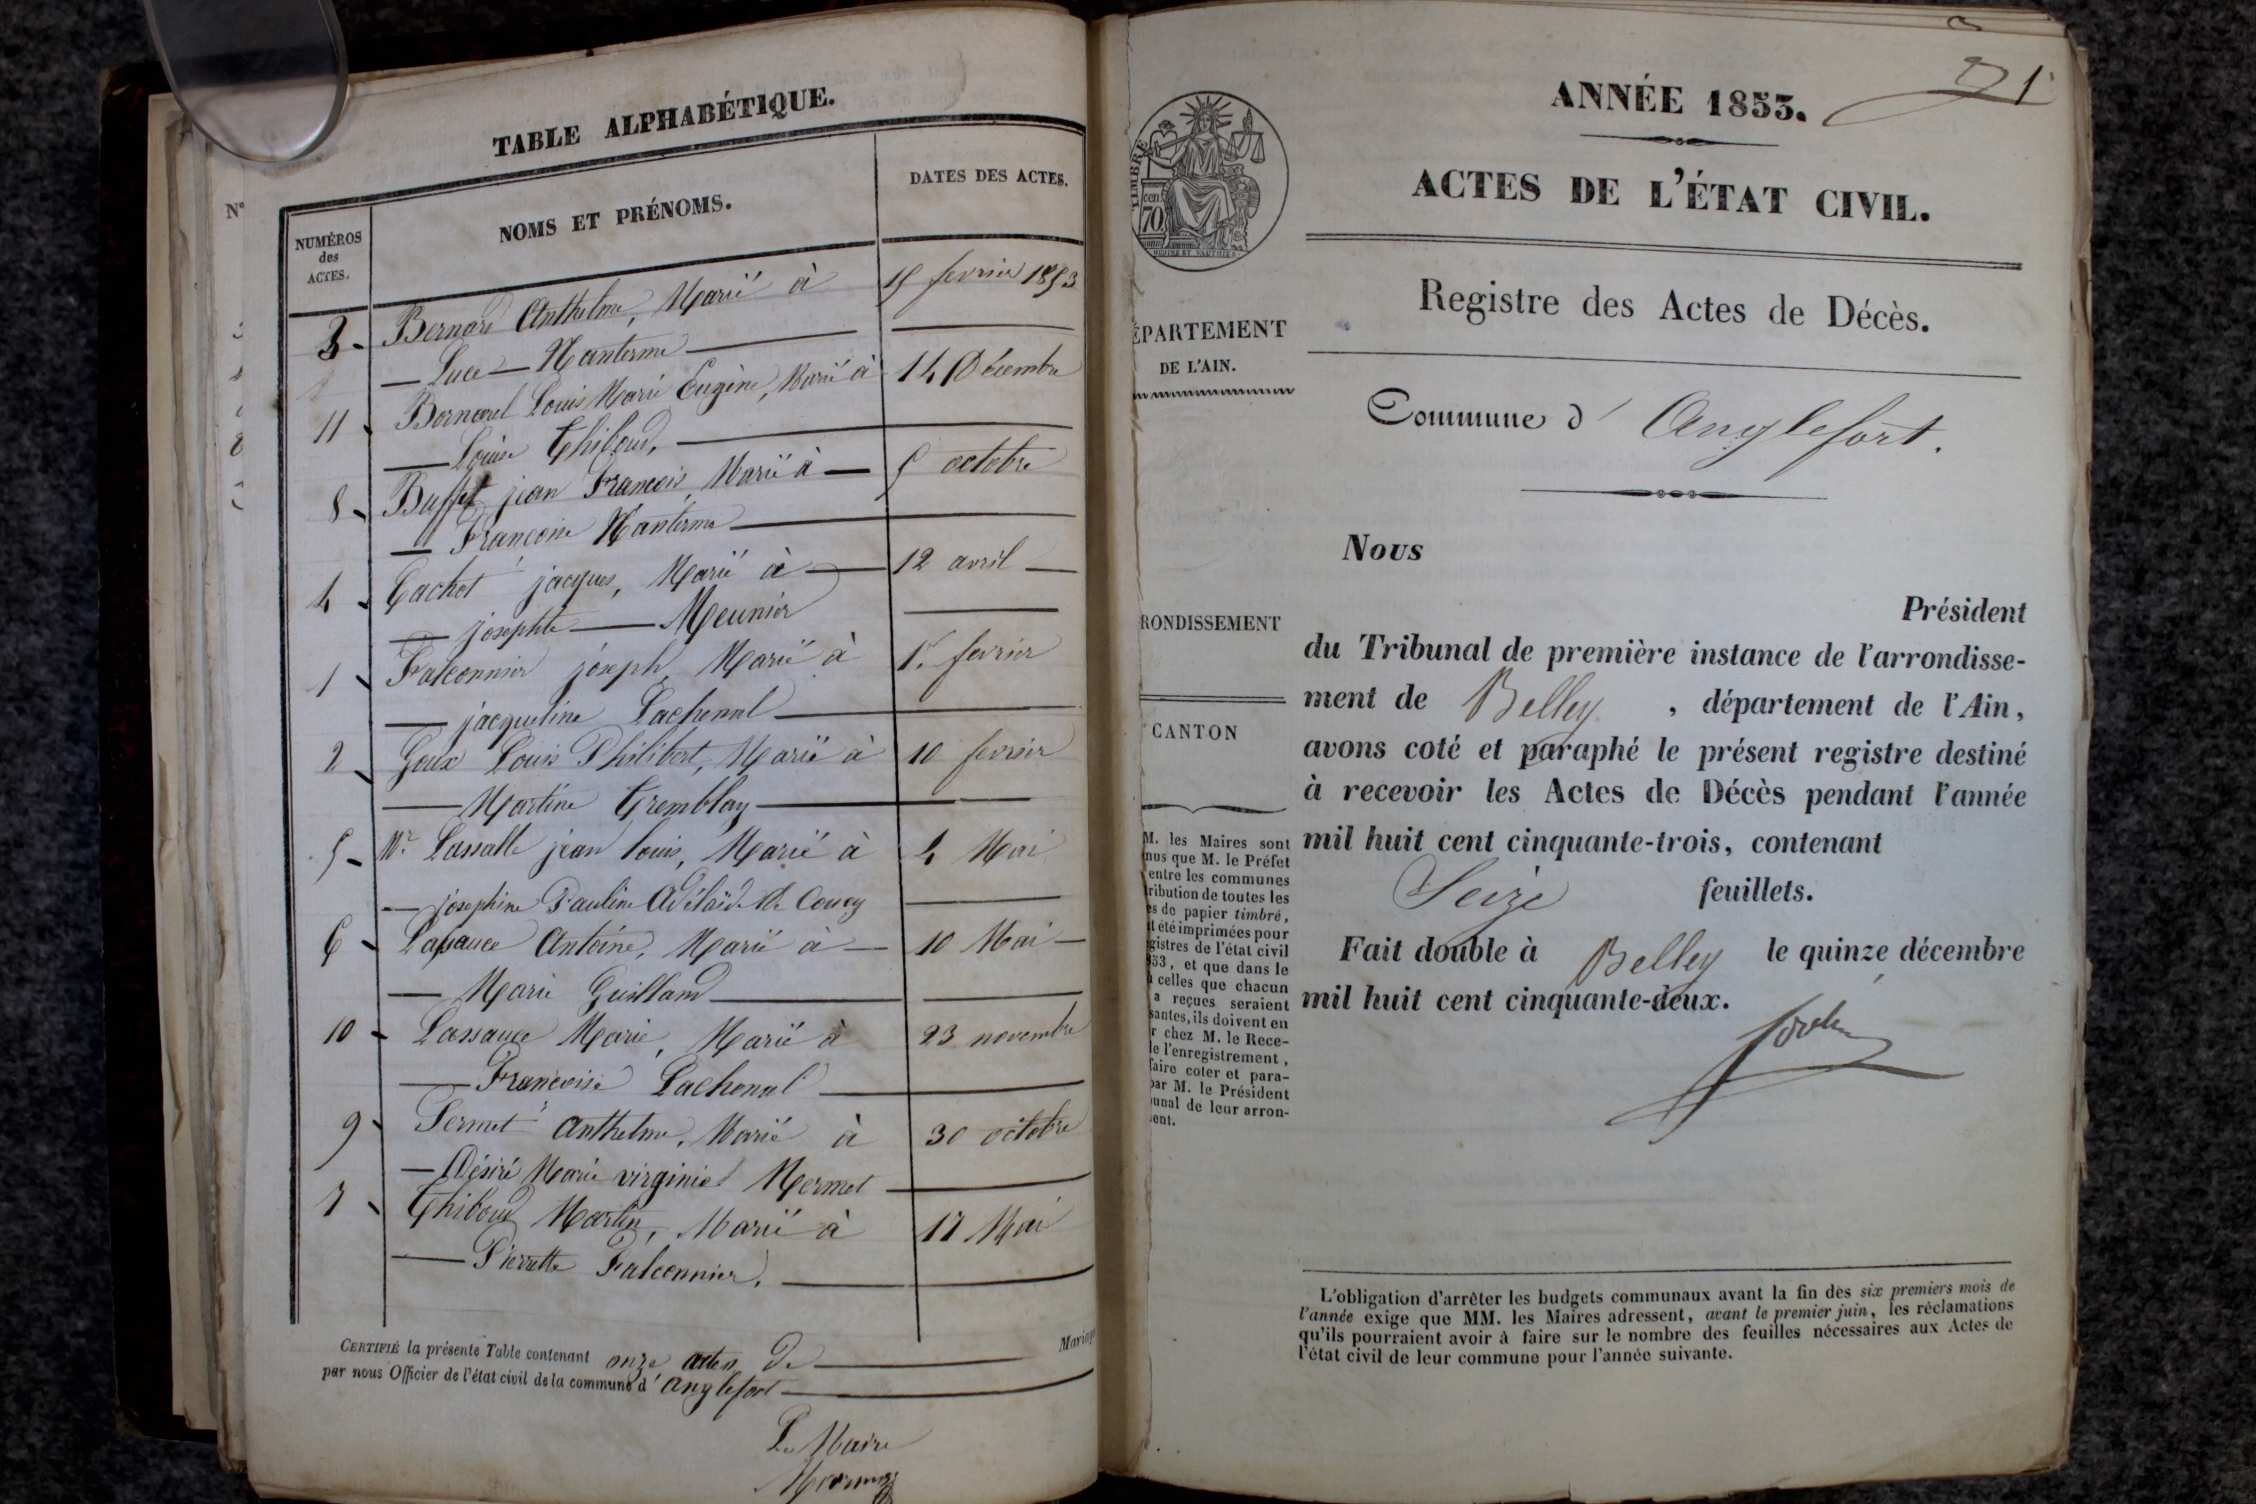 TABLE ALPHABÉTIQUE.
N°
NUMÉROS
des
ACTES.
NOMS ET PRÉNOMS.
DATES DES ACTES.
3 - Bernard Anthelme, Marié à 15 fevrier 1853
— Luce — Nanterme —
11 - Bernard Louis Marie Eugène, Marié à 14 Décembre
— Louise Thiboud, —
8 - Buffet jean François, Marié à — 5 octobre
— Francoise Nanterme —
4 - Cachet jacques, Marié à — 12 avril —
— josephte — Meunier —
1 - Falconnier joseph, Marié à 1er fevrier
— jacqueline Lachenal —
2 - Goux Louis Philibert, Marié à 10 fevrier
— Martine Tremblay —
5 - Mr Lassalle jean louis, Marié à 4 Mai
— josephine Pauline Adélaïde de Coucy —
6 - Lassauce Antoine, Marié à — 10 Mai —
— Marie Guilland —
10 - Lassauce Marie, Marié à 23 novembre
— Francoise Lachenal —
9 - Sermet Anthelme, Marié à 30 octobre
— Désiré Marie virginie Mermet —
7 - Thiboud Martin, Marié à 17 Mai
— Pierrette Falconnier, —
CERTIFIÉ la présente Table contenant onze actes de — Mariage
par nous Officier de l'état civil de la commune d' anglefort —
Le Maire
ANNÉE 1853.
1
ACTES DE L'ÉTAT CIVIL.
TIMBRE
cent.
70
Registre des Actes de Décès.
ÉPARTEMENT
DE L'AIN.
Commune d' Anglefort.
Nous
Président
RONDISSEMENT
du Tribunal de première instance de l'arrondisse-
ment de Belley , département de l'Ain,
CANTON
avons coté et paraphé le présent registre destiné
à recevoir les Actes de Décès pendant l'année
mil huit cent cinquante-trois, contenant
Seize feuillets.
Fait double à Belley le quinze décembre
mil huit cent cinquante-deux.
M. les Maires sont
nus que M. le Préfet
entre les communes
tribution de toutes les
es de papier timbré,
t été imprimées pour
gistres de l'état civil
853, et que dans le
ù celles que chacun
a reçues seraient
santes, ils doivent en
r chez M. le Rece-
de l'enregistrement,
faire coter et para-
par M. le Président
unal de leur arron-
ent.
L'obligation d'arrêter les budgets communaux avant la fin des six premiers mois de
l'année exige que MM. les Maires adressent, avant le premier juin, les réclamations
qu'ils pourraient avoir à faire sur le nombre des feuilles nécessaires aux Actes de
l'état civil de leur commune pour l'année suivante.